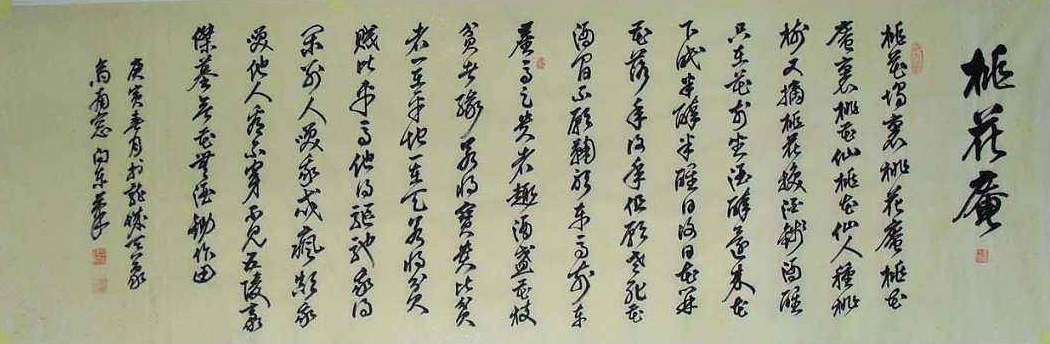 桃花庵
桃花塢裏桃花庵桃花
庵裏桃花仙桃花仙人種桃
樹又摘桃花換酒錢酒醒
只在花前坐酒醉還來花
下眠半醉半醒日復日花開
花落年復年但願老死花
酒間不願鞠躬車馬前車
塵馬足貴者趣酒盞花枝
貧者緣若將富貴比貧
者一在平地一在天若將貧
賤比車馬他得驅馳我得
閑別人笑我忒瘋顛我
笑他人看不穿不見五陵豪
傑墓無花無酒鋤作田
庚寅春月於龍城
南窓向東